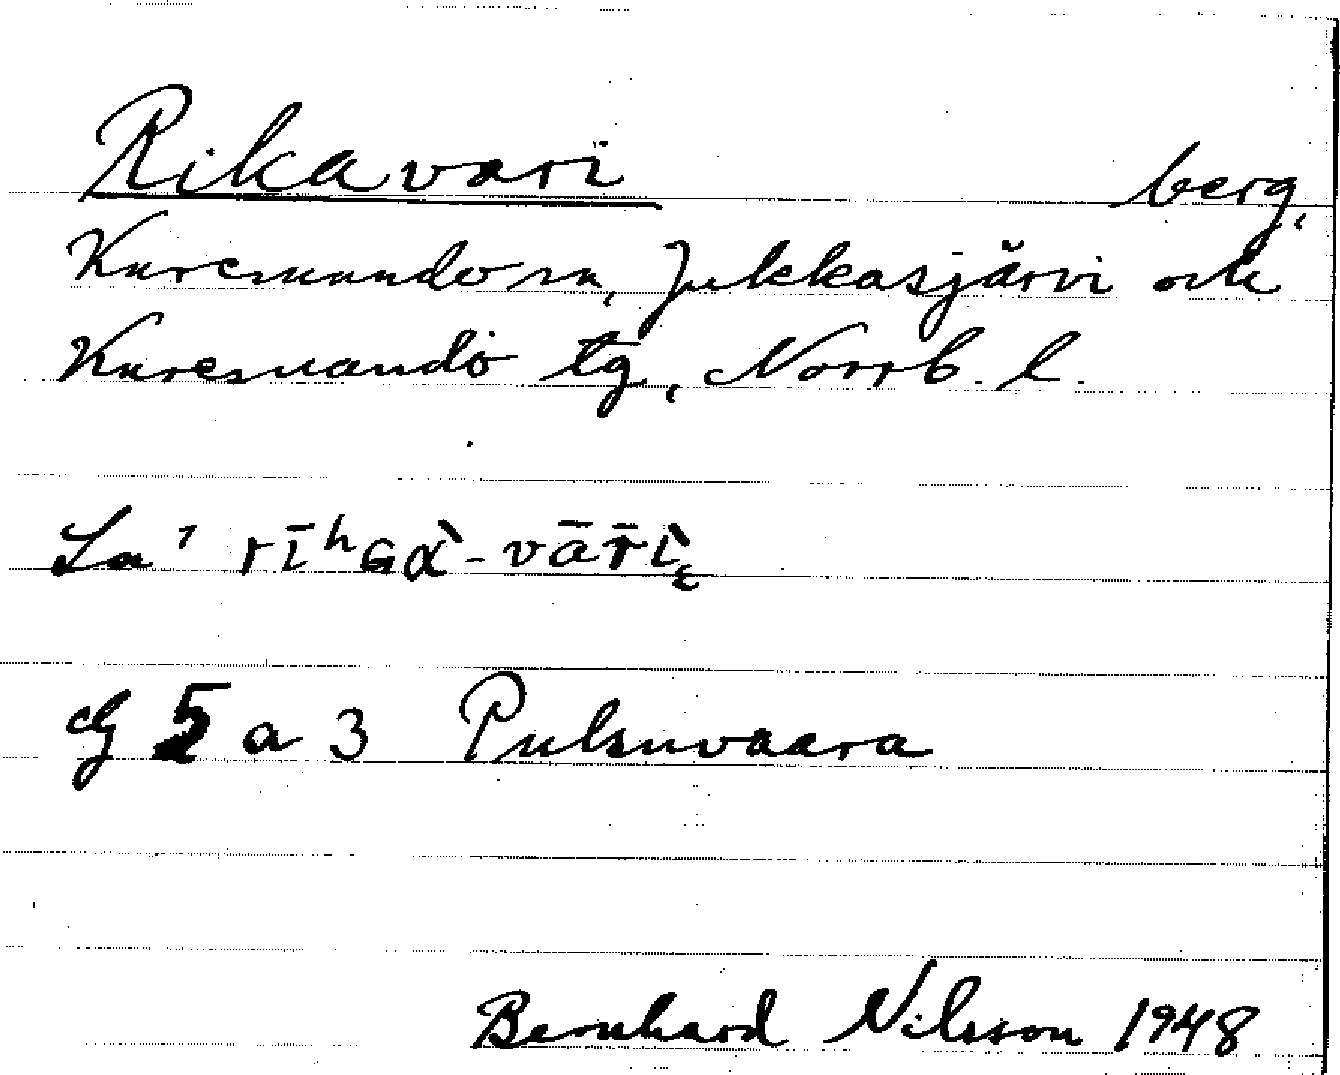 Rikavari berg,
Karesuando sn, Jukkasjärvi och
Karesuando tg, Norrb. l.
La' rīʰɢɑ̀-vār̄ὶ̨
G 5 a 3 Pulsuvaara
Bernhard Nilsson 1948